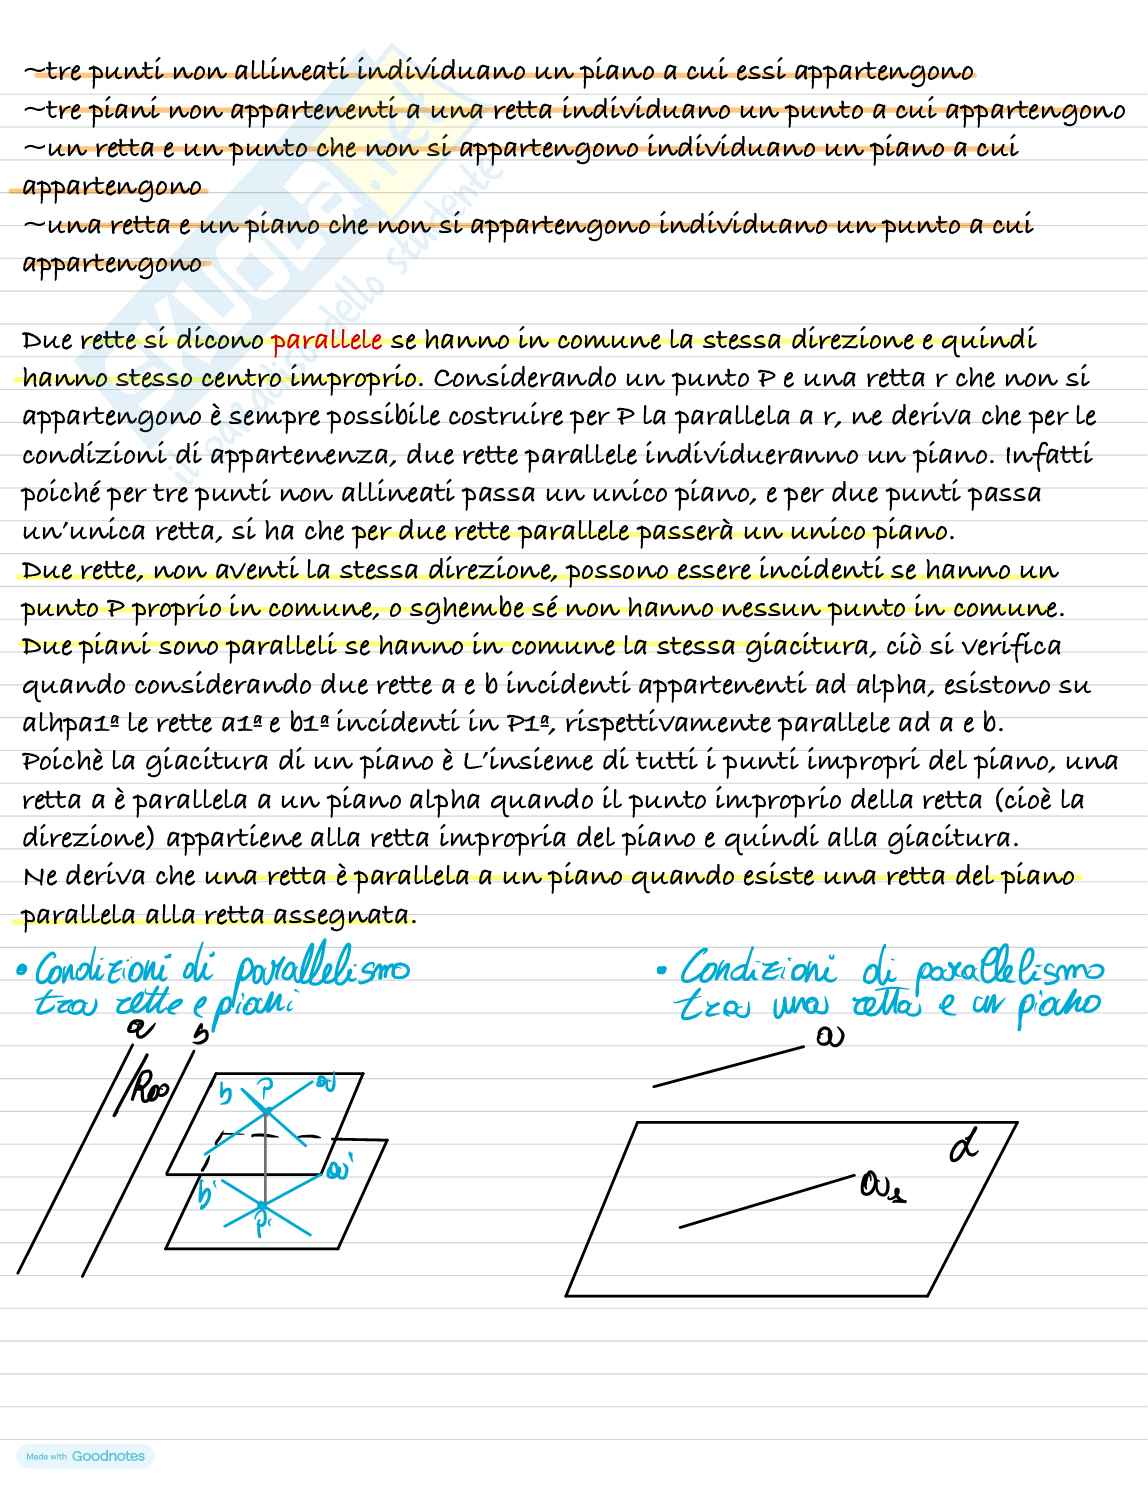 ~tre punti non allineati individuano un piano a cui essi appartengono
~tre piani non appartenenti a una retta individuano un punto a cui appartengono
~un retta e un punto che non si appartengono individuano un piano a cui
appartengono
~una retta e un piano che non si appartengono individuano un punto a cui
appartengono
SKUOLA.net
il paradiso dello studente
Due rette si dicono parallele se hanno in comune la stessa direzione e quindi
hanno stesso centro improprio. Considerando un punto P e una retta r che non si
appartengono è sempre possibile costruire per P la parallela a r, ne deriva che per le
condizioni di appartenenza, due rette parallele individueranno un piano. Infatti
poiché per tre punti non allineati passa un unico piano, e per due punti passa
un'unica retta, si ha che per due rette parallele passerà un unico piano.
Due rette, non aventi la stessa direzione, possono essere incidenti se hanno un
punto P proprio in comune, o sghembe sé non hanno nessun punto in comune.
Due piani sono paralleli se hanno in comune la stessa giacitura, ciò si verifica
quando considerando due rette a e b incidenti appartenenti ad alpha, esistono su
alhpa1ª le rette a1ª e b1ª incidenti in P1ª, rispettivamente parallele ad a e b.
Poichè la giacitura di un piano è L'insieme di tutti i punti impropri del piano, una
retta a è parallela a un piano alpha quando il punto improprio della retta (cioè la
direzione) appartiene alla retta impropria del piano e quindi alla giacitura.
Ne deriva che una retta è parallela a un piano quando esiste una retta del piano
parallela alla retta assegnata.
• Condizioni di parallelismo
tra rette e piani
• Condizioni di parallelismo
tra una retta e un piano
a
b
R∞
b P a
b' a'
P'
a
α
a₁
Made with Goodnotes